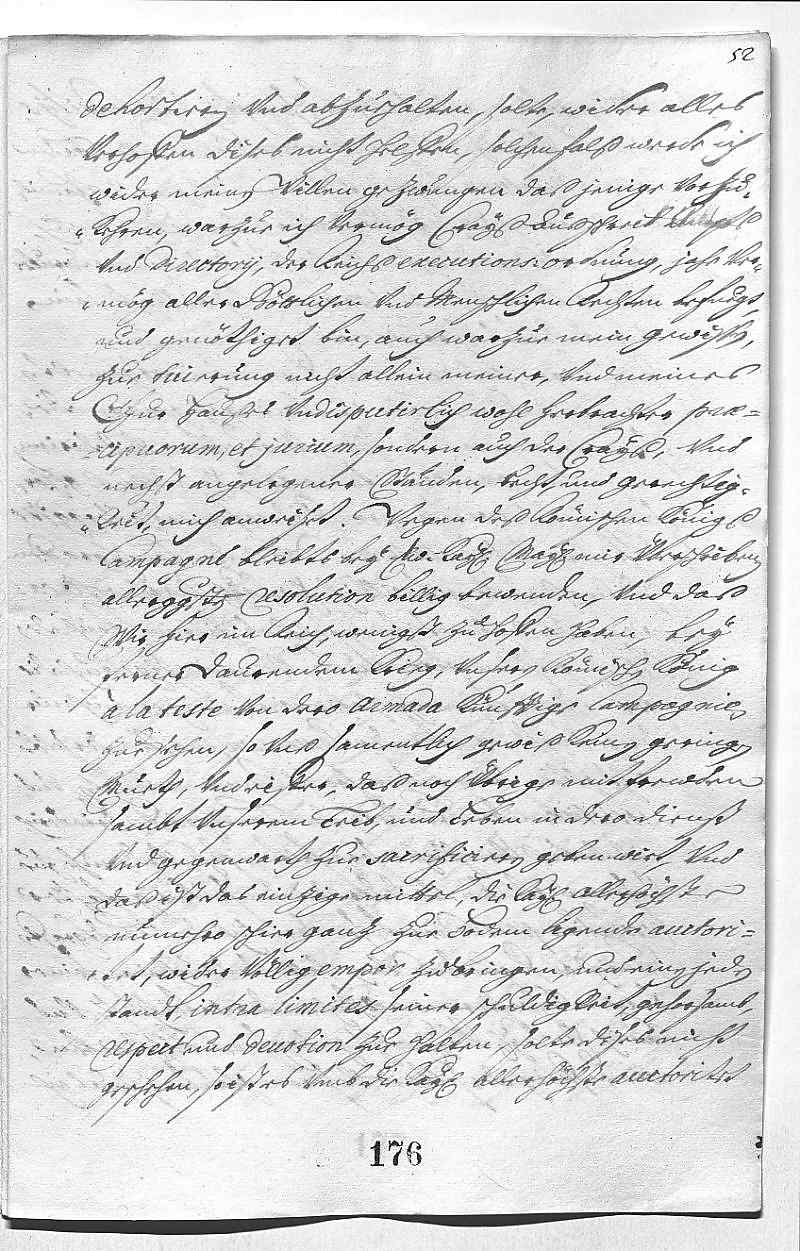 52
dehortiren Und abzuehalten, solte, wider alles
Verhoffen dises nicht helffen, solchenfalß werde ich
wider meinen Willen gezwungen das jenige Vorzu-
Kehren, warzue ich Vermög Crayß Außschreib
Und Directorij, der Reichs executions: ordnung, ja Ver-
mög aller Göttlichen Und Menschlichen Rechten befuegt,
und genöthiget bin, auch warzue mein gewissen,
zue tuierung nicht allein meiner, Und meines
Chur Hauses Undisputirlich wohl herbrachter præ-
cipuorum, et jurium, sondern auch der Crayß, Und
nechst angelegener Ständen, Recht und gerechtig-
Keit, mich anweiset. Wegen des Römischen Königs
Campagne bleibts bey Kay. May. mir Überschribenen
allerggsten resolution billig bewenden, Und das
Wir hier im Reich, wenigst zu hoffen haben, bey
ferner daurendem Krieg, Unsern Römisch. König
à la teste Von dero Armada Künfftige Campagnie
zue sehen, so Uns samentlich gewiß Keinen geringen
Mueth, Und eiffer, das noch Übrige mit freuden
sambt Unserem Leib, und Leben in dero dienst
Und gegenwarth zue sacrificiren geben wirt, Und
das ist das einzige mittel, die Kay. allerhöchste
nunmehro schier gantz zue Bodem ligende auctori-
tet, wider Völlig empor zu bringen, und einen jeden
standt intra limites seiner schuldigkeit, gehorsamb,
respect und devotion zue halten, solte dises nicht
geschehen, so ist es Umb die Kay. allerhöchste auctoritet
176